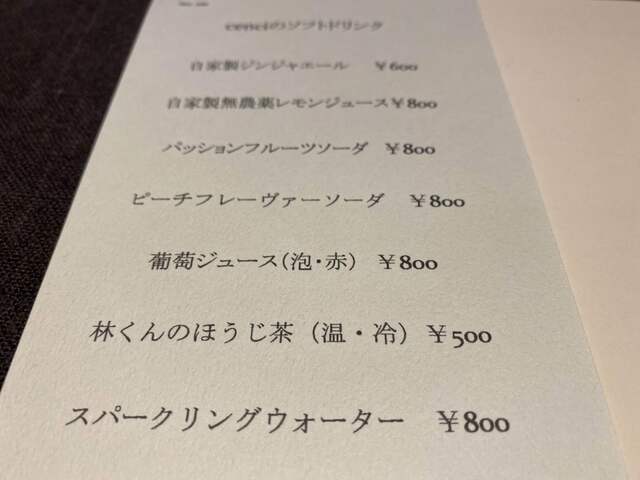 cenciのソフトドリンク
自家製ジンジャエール ￥600
自家製無農薬レモンジュース￥800
パッションフルーツソーダ ￥800
ピーチフレーヴァーソーダ ￥800
葡萄ジュース(泡・赤) ￥800
林くんのほうじ茶（温・冷）￥500
スパークリングウォーター ￥800